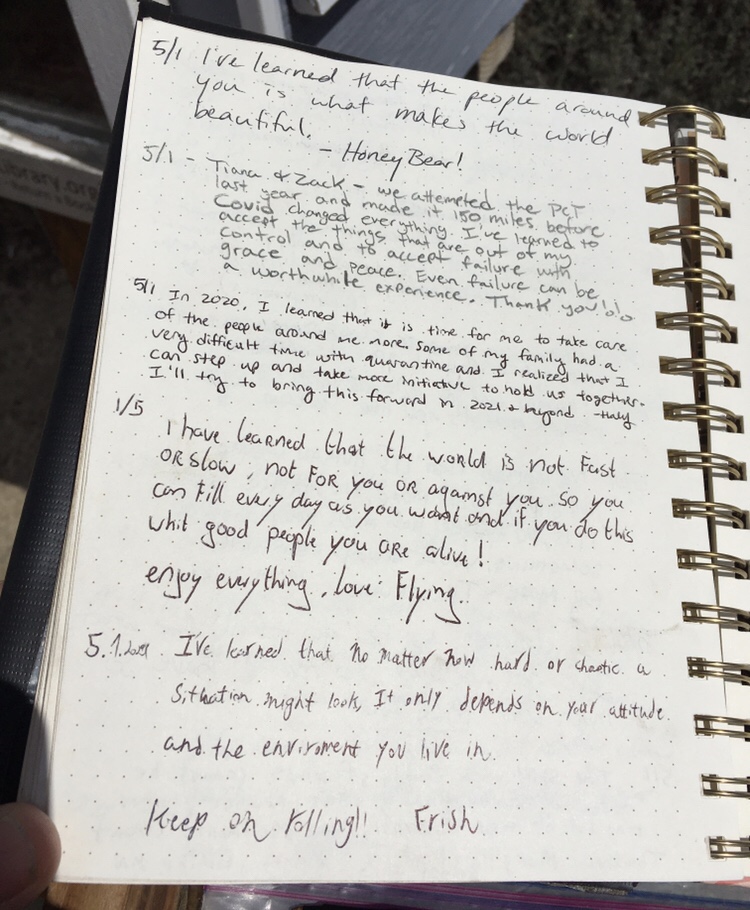 5/1 I've learned that the people around
you is what makes the world
beautiful.
- Honey Bear!
5/1 - Tiana & Zack - we attemeted the PCT
last year and made it 150 miles before
Covid changed everything. I've learned to
accept the things that are out of my
control and to accept failure with
grace and peace. Even failure can be
a worthwhile experience. Thank you!
5/1 In 2020, I learned that it is time for me to take care
of the people around me more. Some of my family had a
very difficult time with quarantine and I realized that I
can step up and take more initiative to hold us together.
I'll try to bring this forward in 2021 & beyond
1/5
I have learned that the world is not Fast
OR slow, not FOR you OR against you so you
can fill every day as you want and if you do this
whit good people you are alive!
enjoy everything, love Flying.
5.1.2021 I've learned that no matter how hard or chaotic a
situation might look, It only depends on your attitude
and the enviroment you live in.
Keep on rolling!! Erish